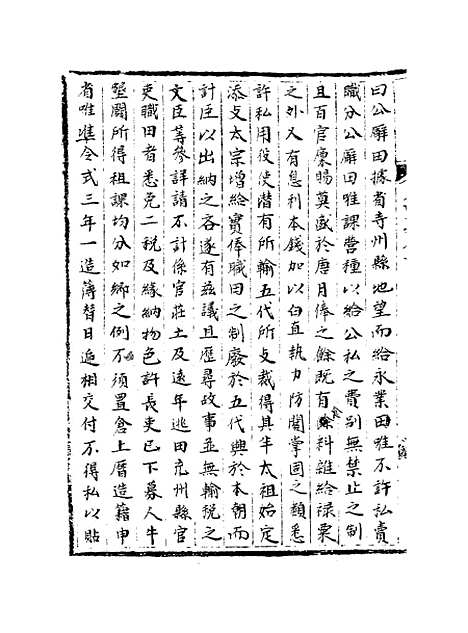 曰公廨田據省寺州縣地望而給永業田唯不許私賣
職分公廨田唯課營種以給公私之費别無禁止之制
且百官廪賜莫盛於唐月俸之餘既有食料雜給禄粟
之外又有息利本錢加以白直執力防閤掌固之類悉
許私用役使潛有所輸五代所支裁得其半太祖始定
添支太宗增給實俸職田之制廢於五代興於本朝而
計臣以出納之吝遂有兹議且歷尋故事並無輸税之
文臣等參詳請不計係官莊土及遠年逃田充州縣官
吏職田者悉免二税及緣納物色許長吏已下募人牛
墾闢所得租課均分如鄉之例不須置倉上曆造籍申
省唯準令式三年一造簿替日遞相交付不得私以貼